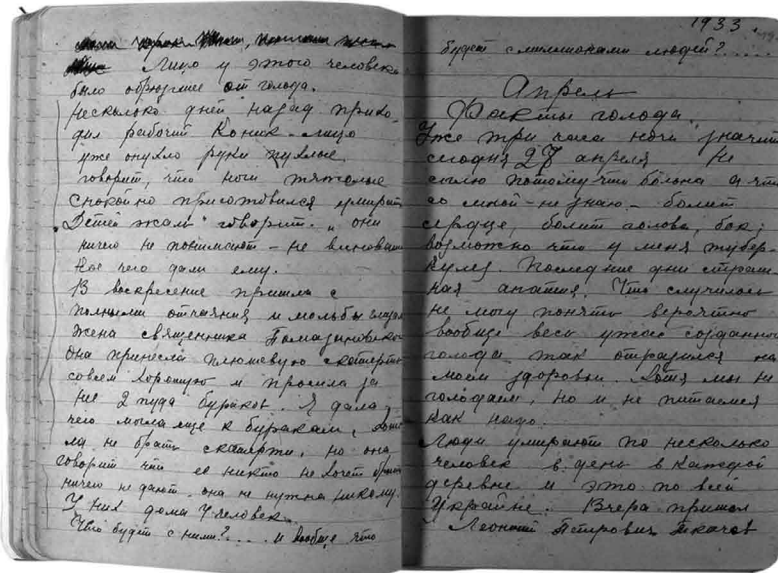 Лицо у этого человека
было обрюзгшее от голода.
Несколько дней назад прихо-
дил рабочий Коник – лицо
уже опухло руки пухлые
говорит, что ноги тяжелые
спокойно приготовился умирать
„Детей жаль" говорит – „они
ничего не понимают – не виноваты
Кое чего дали ему.
В воскресение пришла с
полными отчаяния и мольбы глаза
жена священника
Она принесла плюшевую скатерть
совсем хорошую и просила за
нее 2 пуда бураков. Я дала,
чего могла еще к буракам, хоте
ла не брать скатерти, но она
говорит что ее никто не хочет брать
ничего не дают она не нужна никому.
У них дома 7 человек.
Что будет с ними?.... и вообще что
1933
будет с миллионами людей?.....
Апрель
Факты голода.
Уже три часа ночи значит
сегодня 27 апреля Не
сплю потому что больна а что
со мной – не знаю – болит
сердце, болит голова, бок;
возможно что у меня тубер-
кулез. Последние дни страш-
ная апатия. Что случилось
не могу понять вероятно
вообще весь ужас созданного
голода так отразился на
моем здоровьи. Хотя мы не
голодаем, но и не питаемся
как надо.
Люди умирают по несколько
человек в день в каждой
деревне и это по всей
Украине. Вчера пришел
Леонтий Петрович Ткачев